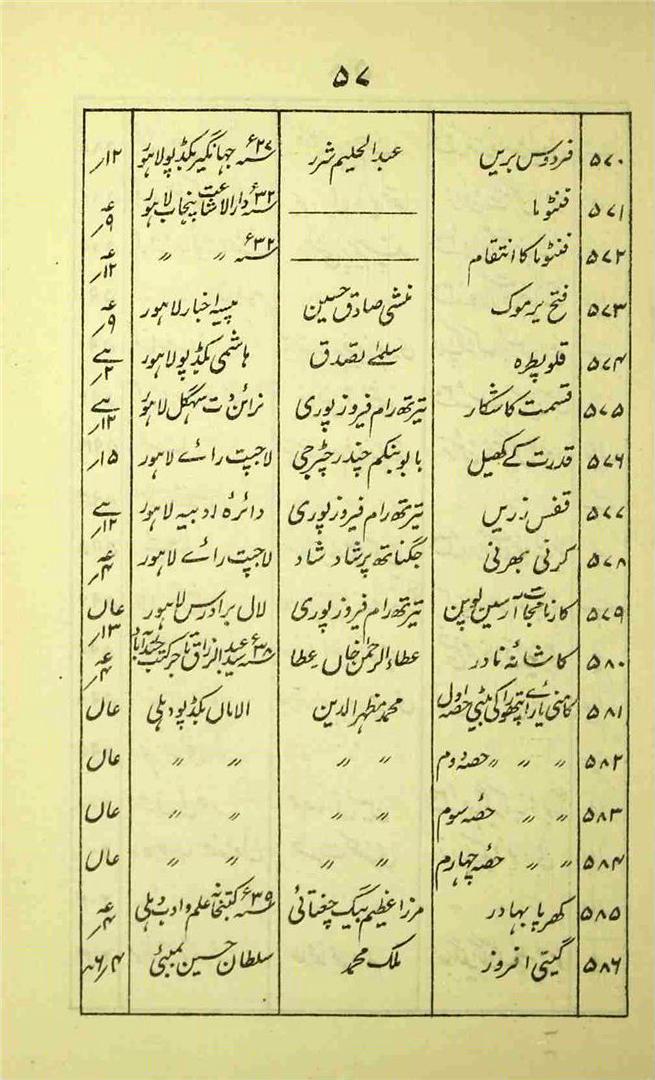 ۵۷
۵۷۰ فردوس بریں عبدالحلیم شرر ۲۷ء جہانگیر بکڈپو لاہور ۱۲ر
۵۷۱ فنٹوما ـــــــ ۳۲ء دارالاشاعت پنجاب لاہور ۹ر
۵۷۲ فنٹوما کا انتقام ـــــــ ۳۲ء 〃 〃 ۱۲ر
۵۷۳ فتح یرموک منشی صادق حسین پیسہ اخبار لاہور ۹ر
۵۷۴ قلوپطرہ سلمےٰ تصدق ہاشمی بکڈپو لاہور ۲ر
۵۷۵ قسمت کا شکار تیرتھ رام فیروزپوری نرائن دت سہگل لاہور ۱۲ر
۵۷۶ قدرت کے کھیل بابو بنکم چندر چٹرجی لاجپت رائے لاہور ۱۵ر
۵۷۷ قفس زریں تیرتھ رام فیروزپوری دائرہ ادبیہ لاہور ۱۲ر
۵۷۸ کرنی بھرنی جگناتھ پرشاد شاد لاجپت رائے لاہور ۴ر
۵۷۹ کارنامجات آرسین لوپن تیرتھ رام فیروزپوری لال برادرس لاہور ۱۳ر
۵۸۰ کاشانہ نادر عطاء الرحمٰن خاں عطا ۳۸ء سید عبدالرزاق تاجر کتب حیدرآباد ۴ر
۵۸۱ کامنی یا رائے پتھورا کی بیٹی حصہ اول محمد مظہرالدین الاماں بکڈپو دہلی عاں
۵۸۲ 〃 〃 〃 حصہ دوم 〃 〃 〃 〃 عاں
۵۸۳ 〃 〃 حصہ سوم 〃 〃 〃 〃 عاں
۵۸۴ 〃 〃 حصہ چہارم 〃 〃 〃 〃 عاں
۵۸۵ کھرپا بہادر مرزا عظیم بیگ چغتائی ۳۹ء کتبخانہ علم و ادب دہلی ۴ر
۵۸۶ گیتی افروز ملک محمد سلطان حسین بمبئی